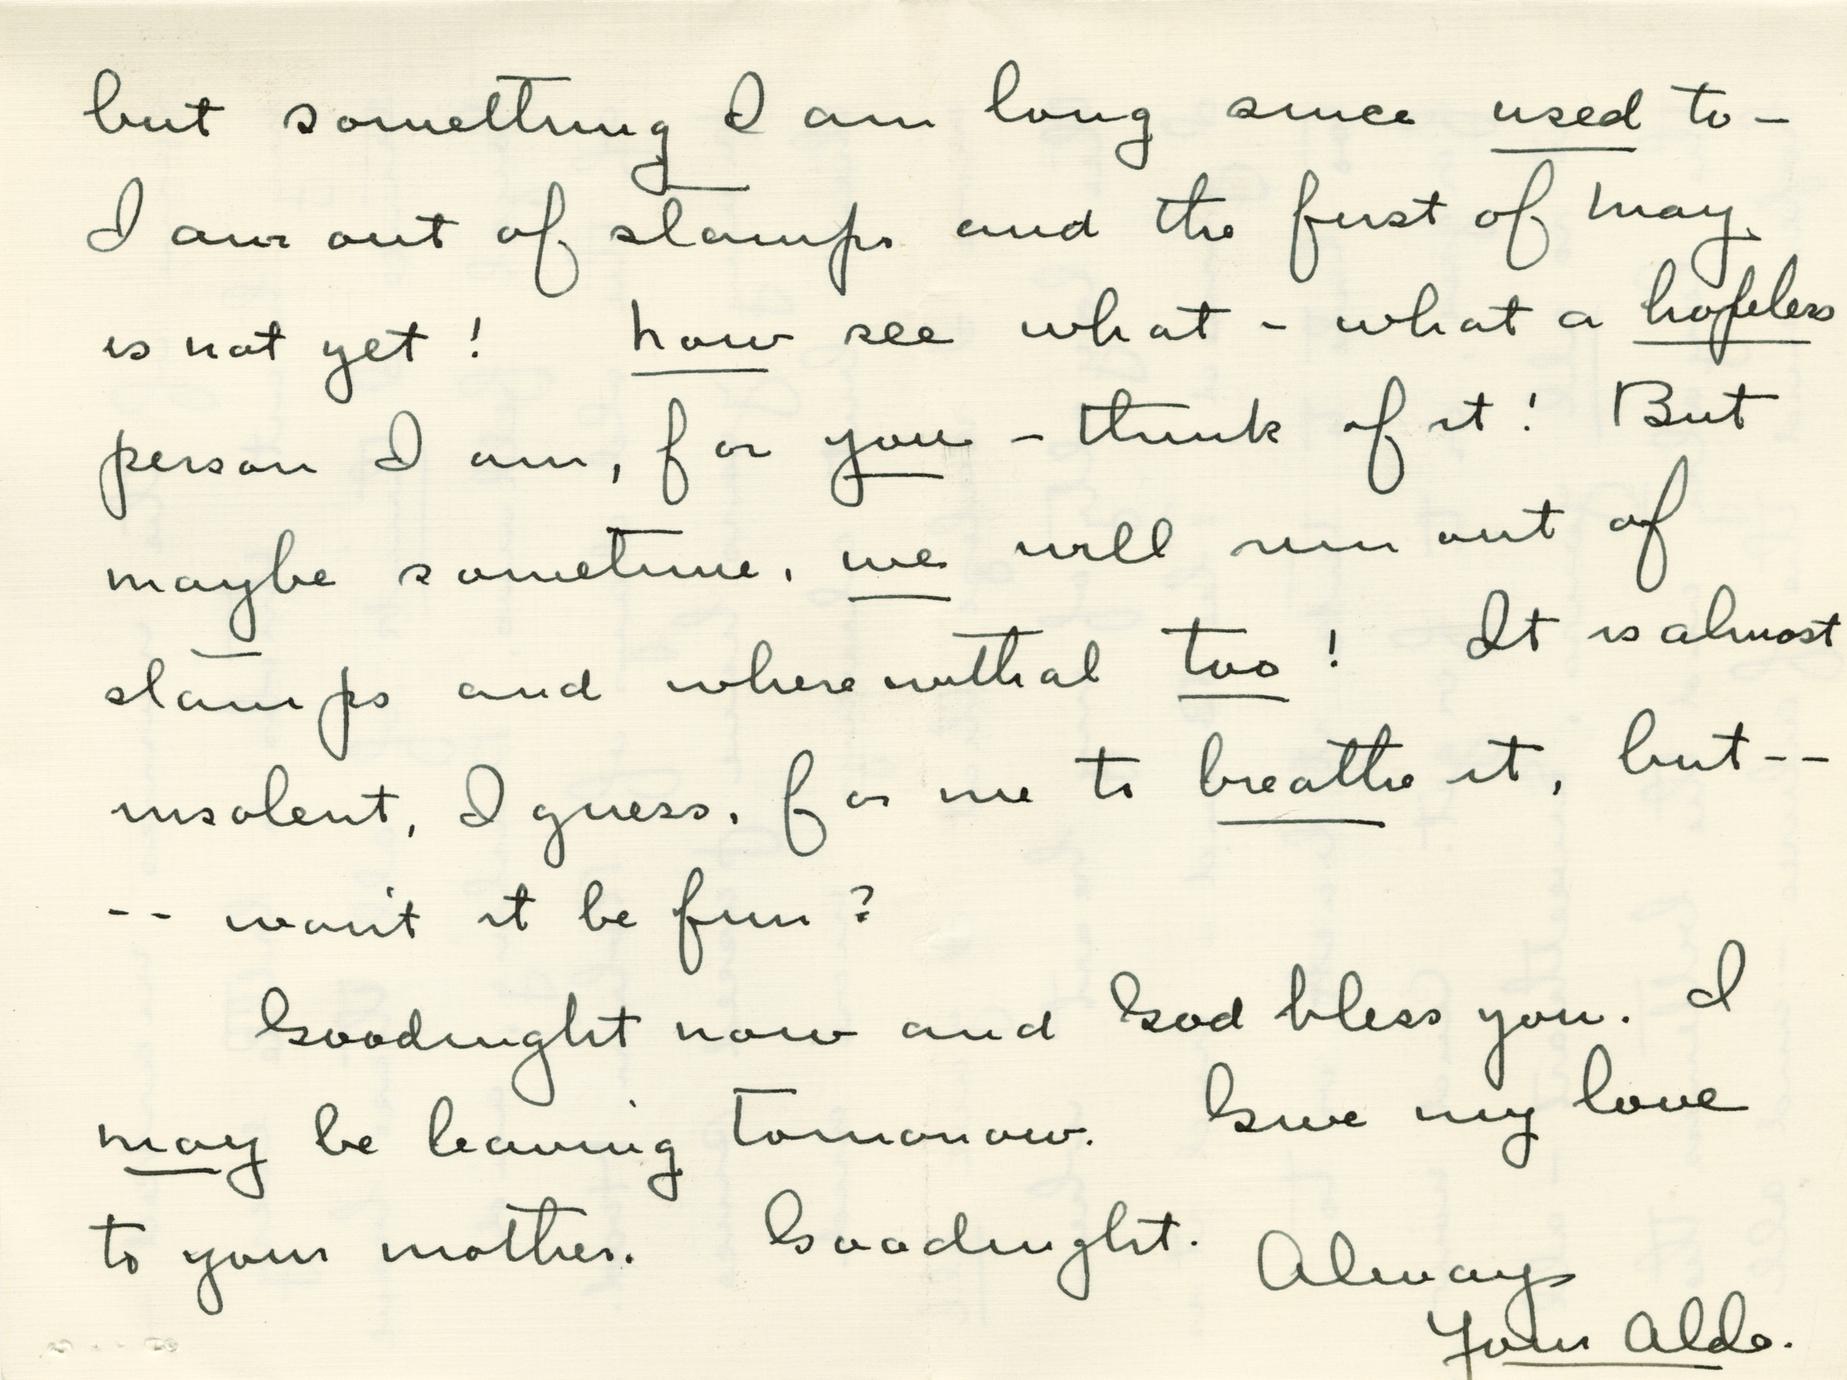 but something I am long since used to —
I am out of stamps and the first of May
is not yet! Now see what - what a hopeless
person I am, for you - think of it! But
maybe sometime, we will run out of
stamps and wherewithal too! It is almost
insolent, I guess, for me to breathe it, but --
-- won't it be fun?
Goodnight now and God bless you. I
may be leaving tomorrow. Give my love
to your mother. Goodnight.
Always
Your Aldo.